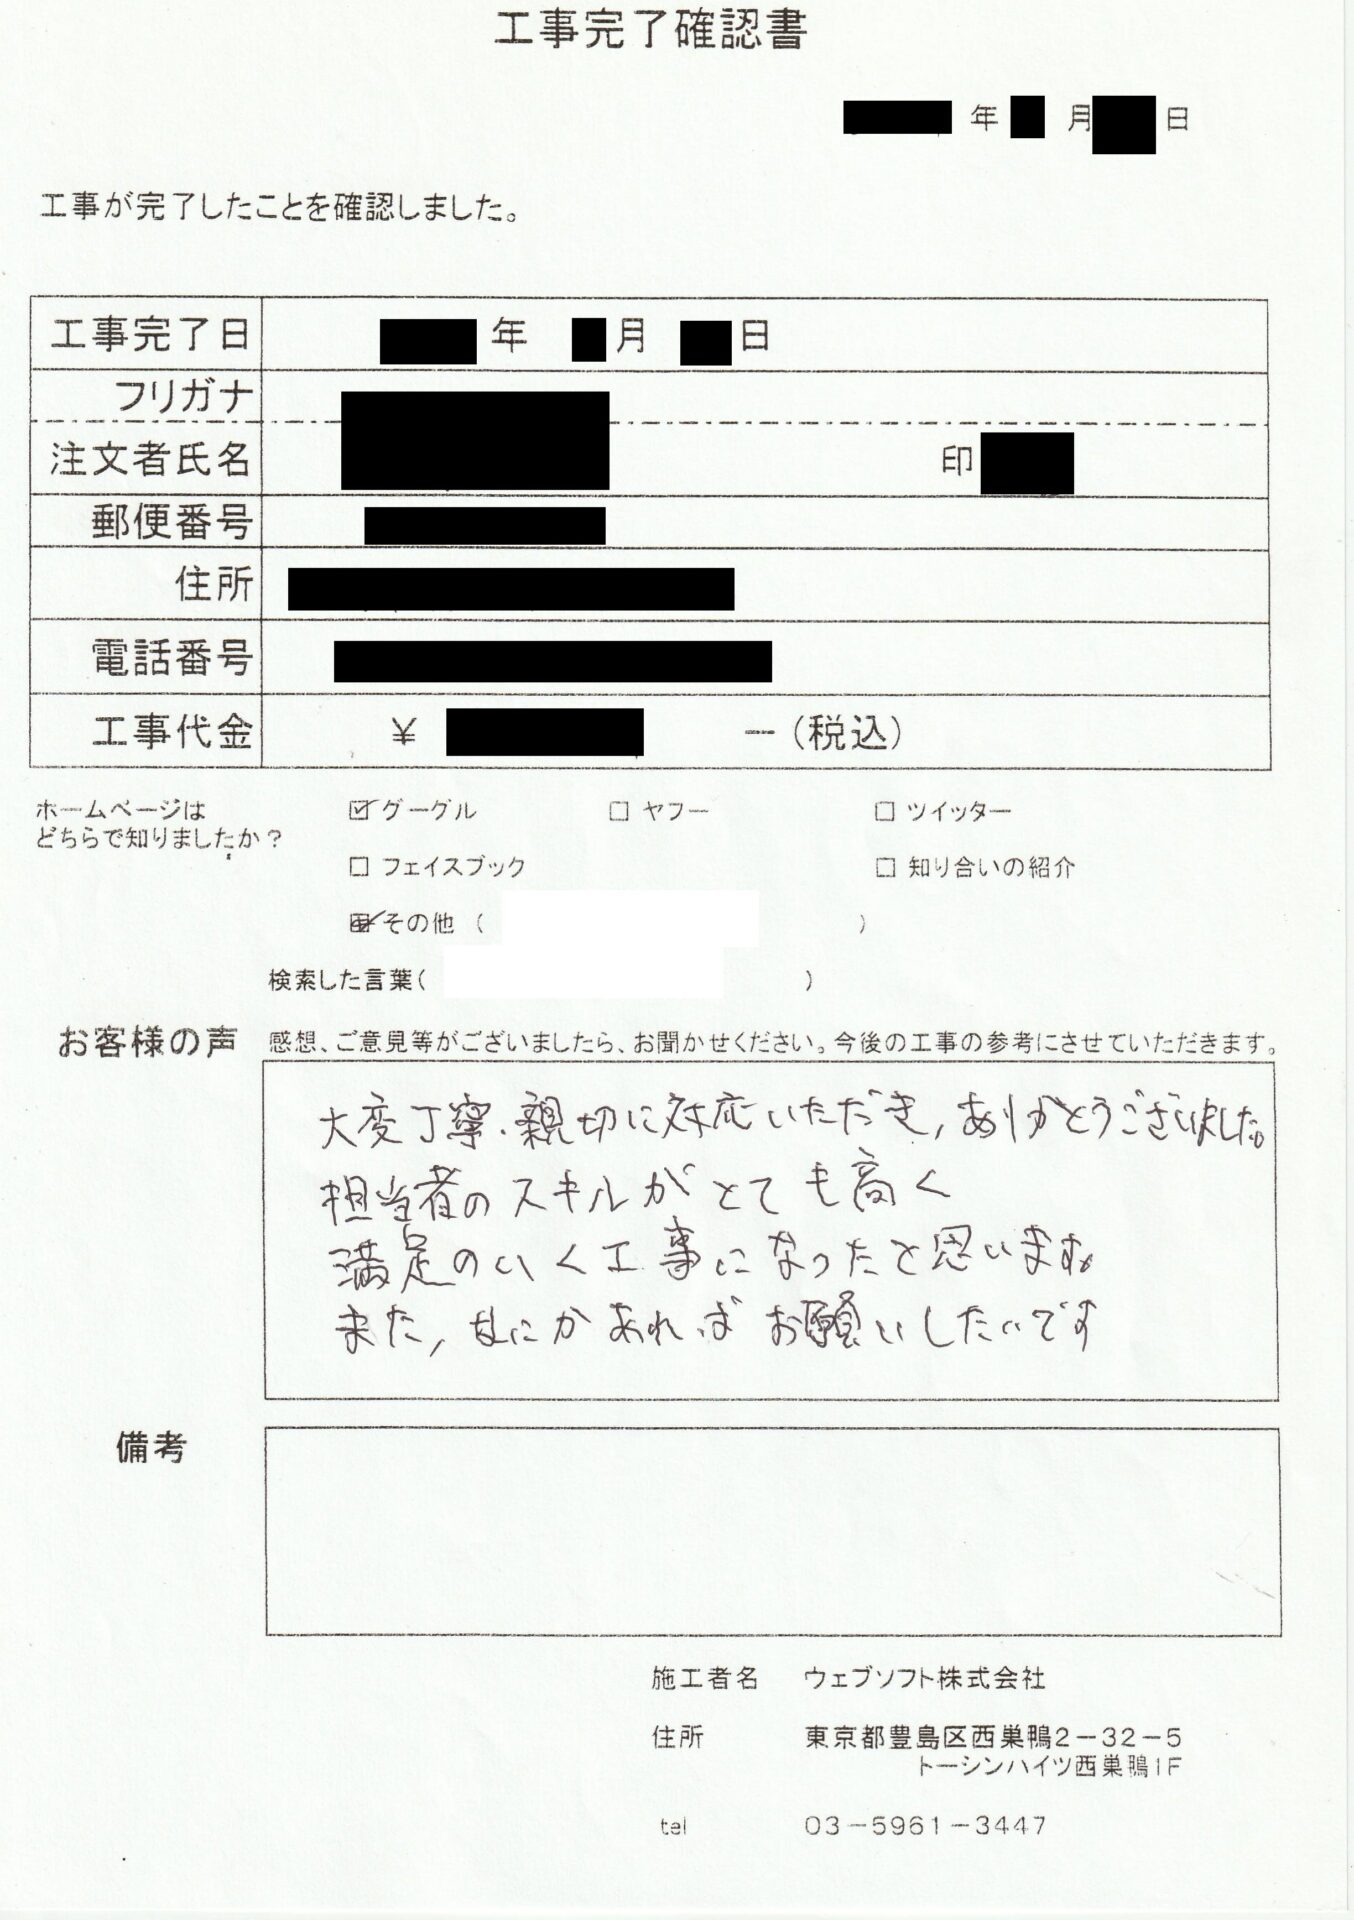 工事完了確認書
年 月 日
工事が完了したことを確認しました。
工事完了日 年 月 日
フリガナ
注文者氏名 印
郵便番号
住所
電話番号
工事代金 ¥ ー(税込)
ホームページは
どちらで知りましたか?
☑グーグル □ヤフー □ツイッター
□フェイスブック □知り合いの紹介
☑その他( )
検索した言葉( )
お客様の声 感想、ご意見等がございましたら、お聞かせください。今後の工事の参考にさせていただきます。
大変丁寧・親切に対応いただき,ありがとうございました。
担当者のスキルがとても高く
満足のいく工事になったと思います。
また,なにかあればお願いしたいです
備考
施工者名 ウェブソフト株式会社
住所 東京都豊島区西巣鴨2-32-5
トーシンハイツ西巣鴨1F
tel 03-5961-3447